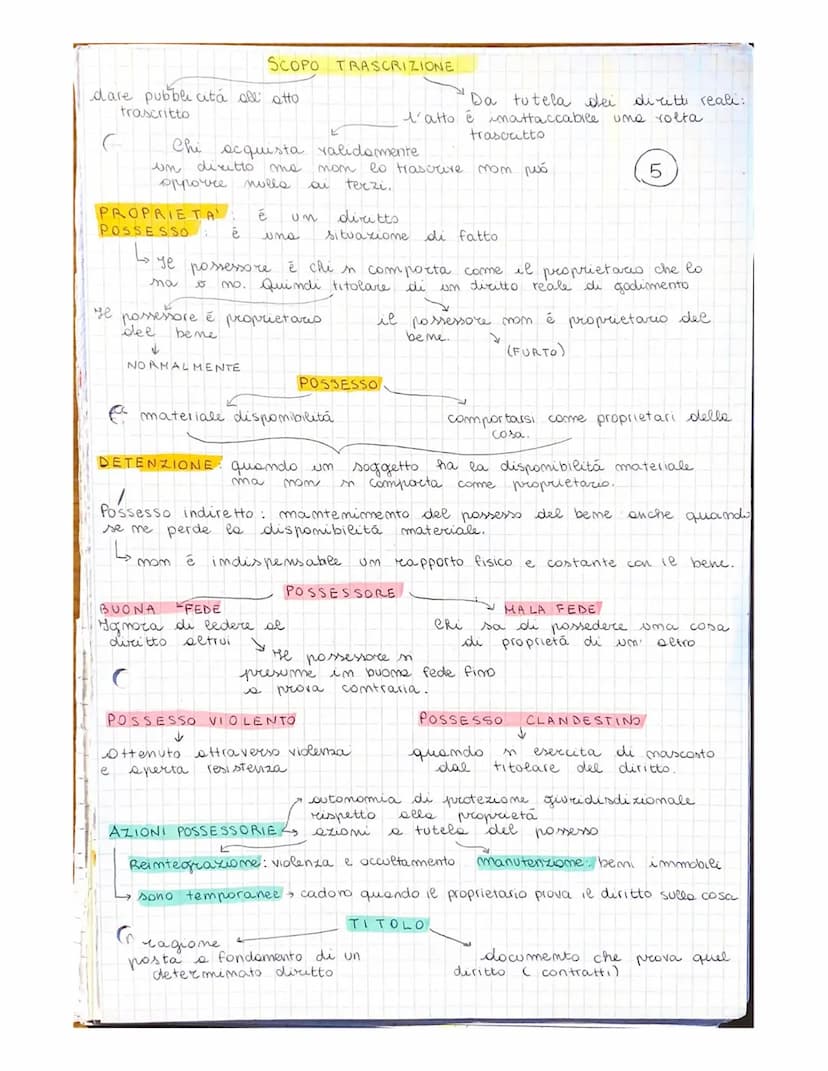 SCOPO TRASCRIZIONE
dare pubblicitá all' atto
trascritto
Da tutela dei diritti reali:
l'atto é inattaccabile una volta
trascritto
Chi acquista validamente
un diritto ma non lo trascrive non puó
opporre nulla ai terzi.
5
PROPRIETA': é un diritto
POSSESSO: é una situazione di fatto
Il possessore é chi si comporta come il proprietario che lo
sia o no. Quindi titolare di un diritto reale di godimento
Il possessore é proprietario
del bene
NORMALMENTE
il possessore non é proprietario del
bene.
(FURTO)
POSSESSO
materiale disponibilitá
comportarsi come proprietari della
cosa.
DETENZIONE: quando un soggetto ha la disponibilitá materiale
ma non si comporta come proprietario.
Possesso indiretto: mantenimento del possesso del bene anche quando
se ne perde la disponibilitá materiale.
non é indispensabile un rapporto fisico e costante con il bene.
POSSESSORE
BUONA FEDE
Ignora di ledere al
diritto altrui
Il possessore si
presume in buona fede fino
a prova contraria.
MALA FEDE
Chi sa di possedere una cosa
di proprietá di un' altro
POSSESSO VIOLENTO
Ottenuto attraverso violenza
e aperta resistenza
POSSESSO CLANDESTINO
quando si esercita di nascosto
dal titolare del diritto.
autonomia di protezione giuridisdizionale
rispetto alla proprietá
AZIONI POSSESSORIE azioni a tutela del possesso
Reintegrazione: violenza e occultamento
manutenzione: beni immobili
sono temporanee cadono quando il proprietario prova il diritto sulla cosa
TITOLO
ragione
posta a fondamento di un
determinato diritto
documento che prova quel
diritto ( contratti)